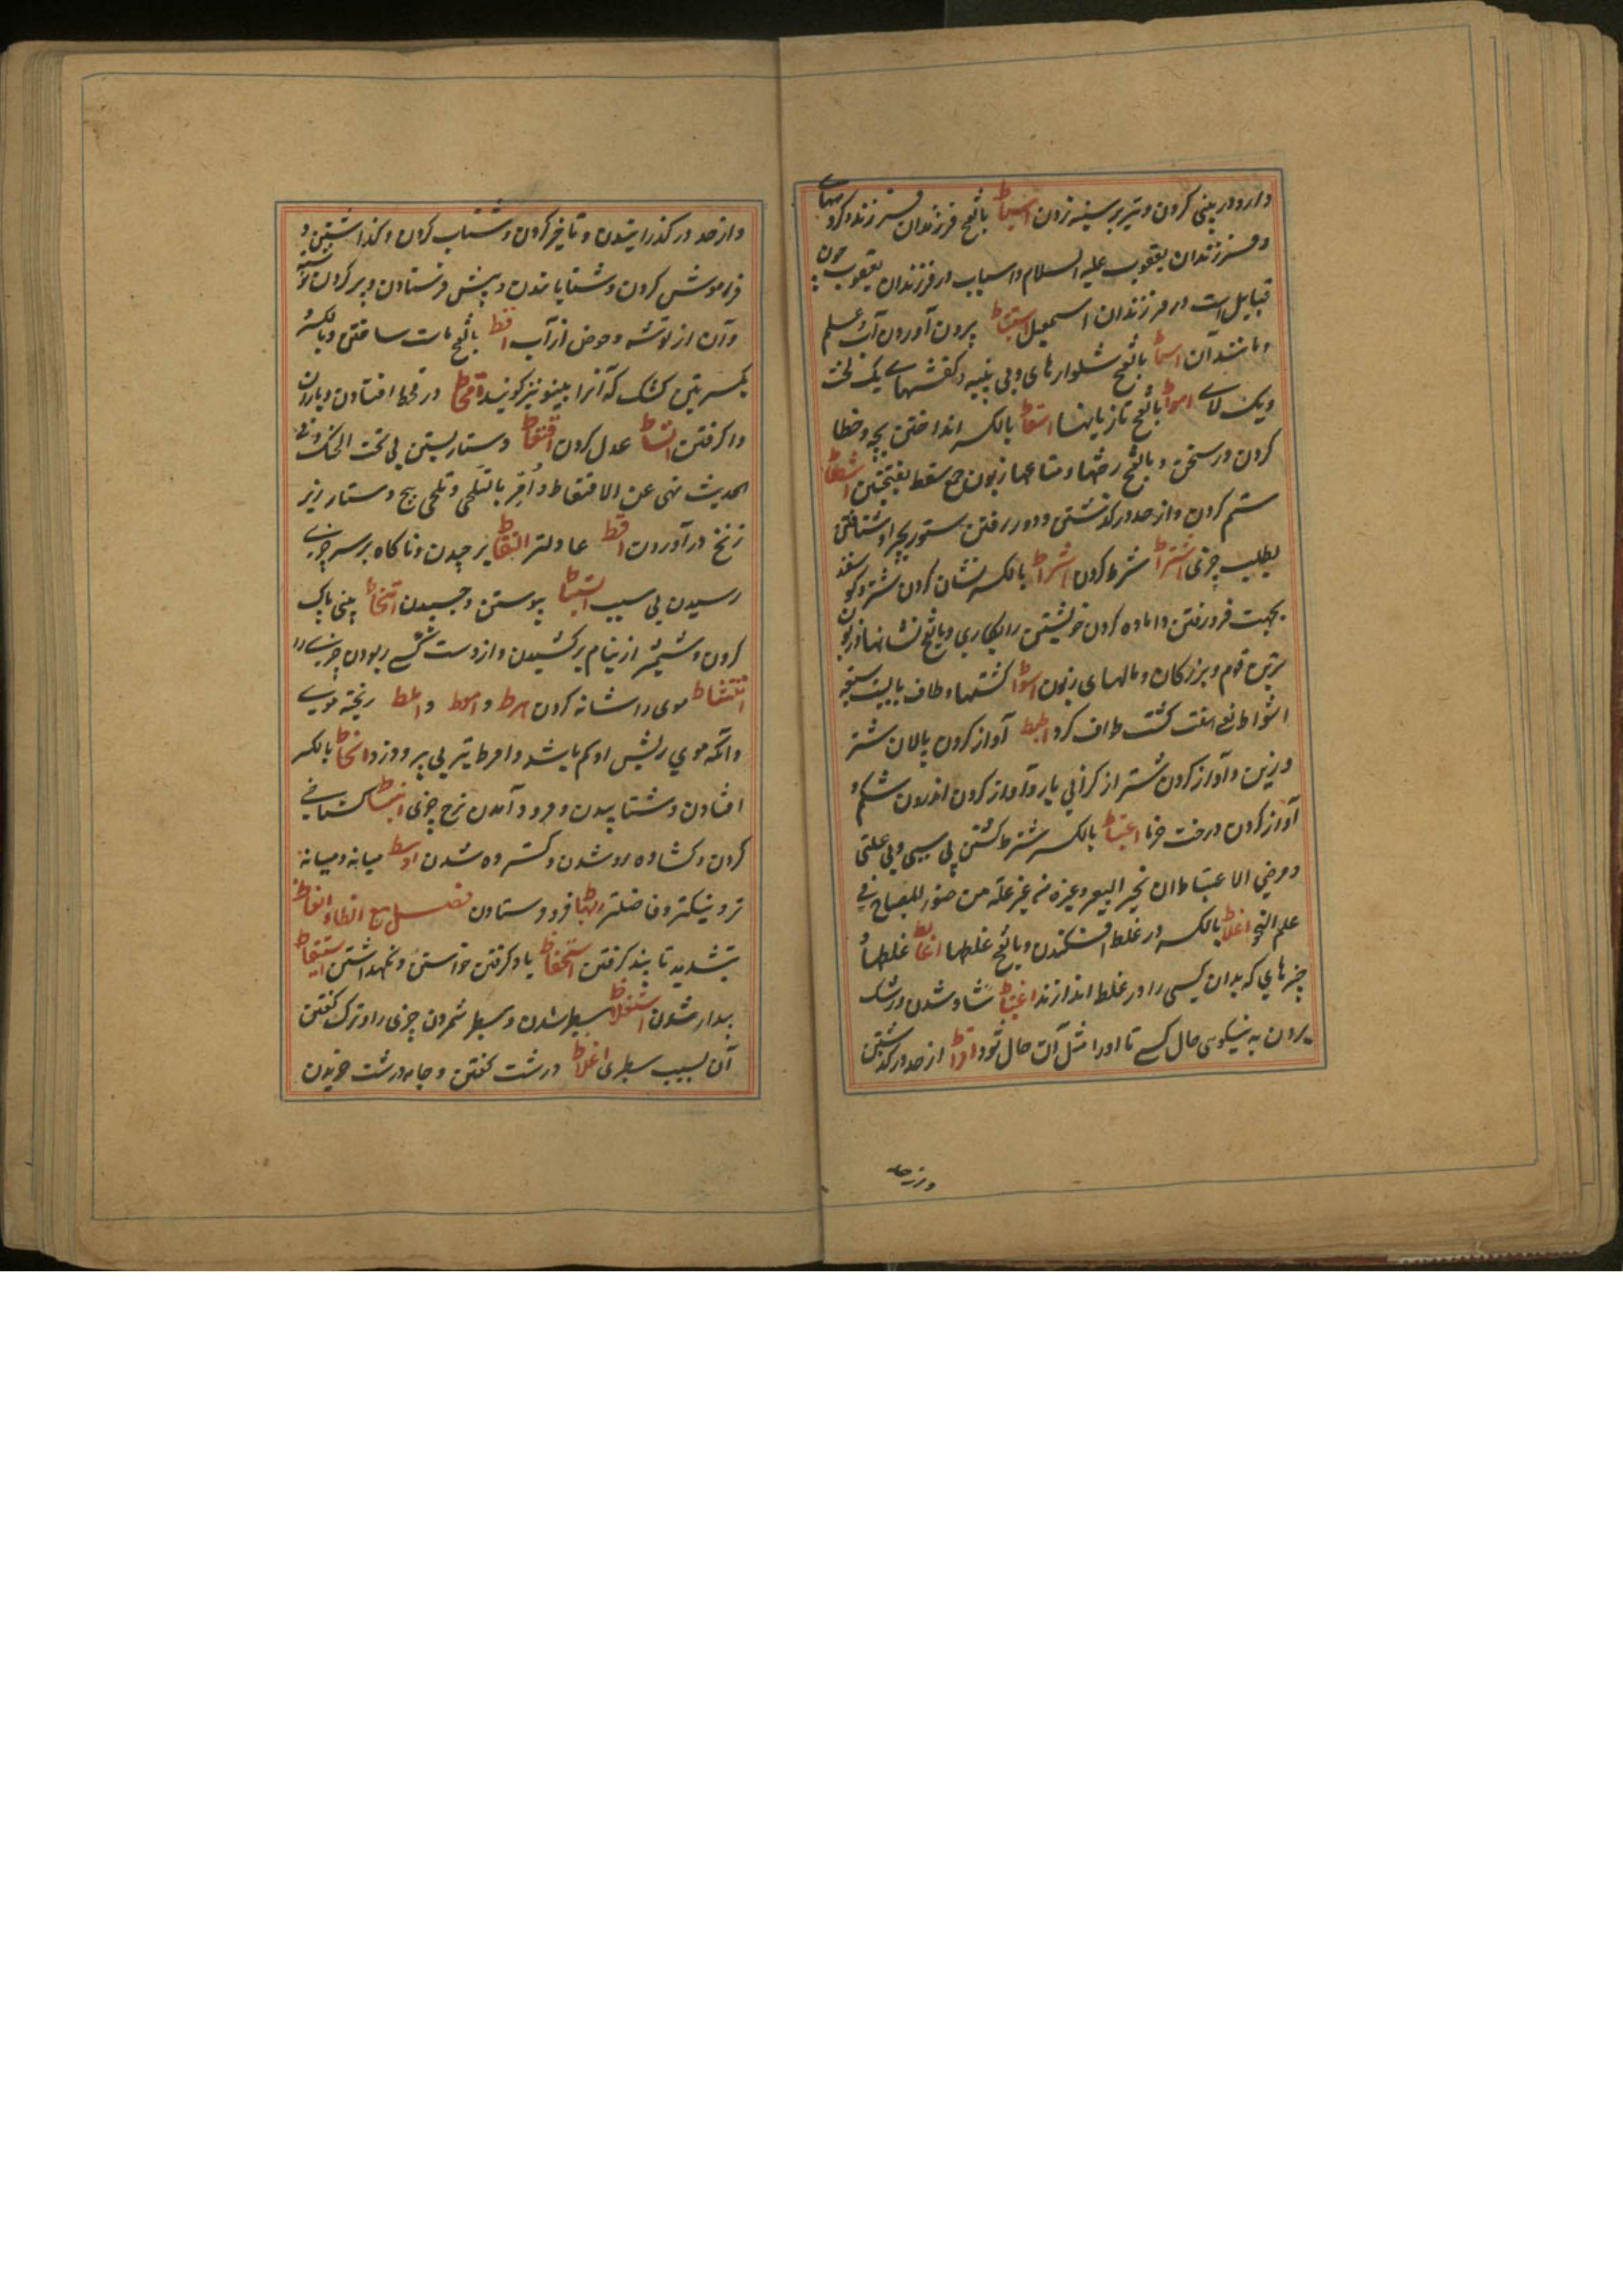 دارو در بینی کردن و تیر بر سینه زدن اسباط بالفتح فرزندان فرزند و گروههای
و فرزندان یعقوب علیه السلام و اسباب در فرزندان یعقوب چون
قبایل است در فرزندان اسمعیل استنباط بیرون آوردن آب و علم
و مانند آن اسماط بالفتح شلوارهای و بی پنبه و کفشهای یک لخت
و یک لای اسواط بالفتح تازیانها اسقاط بالکسر انداختن بچه و خطا
کردن در سخن و بالفتح رختها و متاعها زبون جمع سقط بفتحتین اشطاط
ستم کردن و از حد در گذشتن و دور رفتن ستور بچرا و شتافتن
بطلب چیزی اشتراط شرط کردن اشراط بالکسر نشان کردن شتر و گوسفند
بجهت فرو رفتن و اماده کردن خویشتن را بکاری و بالفتح نشانها و زبون
ترین قوم و بزرگان و مالهای زبون اشواط گشتها و طاف بالبیت سبعة
اشواط یعنی هفت گشت طواف کرد اطیط آواز کردن پالان شتر
و زین و آواز کردن شتر از گرانی بار و آواز کردن اندرون شکم و
آواز کردن درخت خرما اعتباط بالکسر شتر کشتن بی سببی و بی علتی
و مرضی الاعتباط ان ینحر البعیر و غیره من غیر علة من
علم اغلاط بالکسر در غلط افکندن و بالفتح غلطها اغالیط غلطها و
چیزهای که بدان کسی را در غلط اندازند اغتباط شاد شدن و رشک
بردن به نیکویی حال کسی تا او را مثل آن حال شود افراط از حد در گذشتن
و از حد
و از حد در گذرانیدن و تاخیر کردن و شتاب کردن و گذاشتن و
فراموش کردن و شتابانیدن و پیش فرستادن و پر کردن توشه
وآن از توشه و حوض از آب اقط بالفتح ماست ساختن و بالکسر
یکسرتین کشک که آنرا پینو نیز گویند اقحاط در قحط افتادن و باران
وا گرفتن اقساط عدل کردن اقتعاط دستار بستن بی تحت الحنک و فی
الحدیث نهی عن الاقتعاط و اُمِر بالتلحی و تلحی پیچ دستار زیر
زنخ در آوردن اقسط عادلتر التقاط بر چیدن و ناگاه بر سر چیزی
رسیدن بی سبب التباط پیوستن و چسپیدن امتخاط بینی پاک
کردن و شمشیر از نیام بر کشیدن و از دست کسی ربودن چیزی را
امتشاط موی را شانه کردن امرط و امعط و املط ریخته موی
و آنکه موی ریش او کم باشد و امرط تیر بی پر و دزد انحطاط بالکسر
افتادن و شتابیدن و فرود آمدن نرخ چیزی انبساط گستاخی
کردن و گشاده رو شدن و گسترده شدن اوسط میانه و میانه
تر و نیکتر و فاضلتر اهباط فرو فرستادن فصل مع الظاء اتعاظ
بتشدید تا پند گرفتن استحفاظ یاد گرفتن خواستن و نگهداشتن استیقاظ
بیدار شدن استغلاظ سطبر شدن و سطبر شمردن چیزی را و ترک گفتن
آن بسبب سطبری اغلاظ درشت گفتن و جامه درشت خریدن